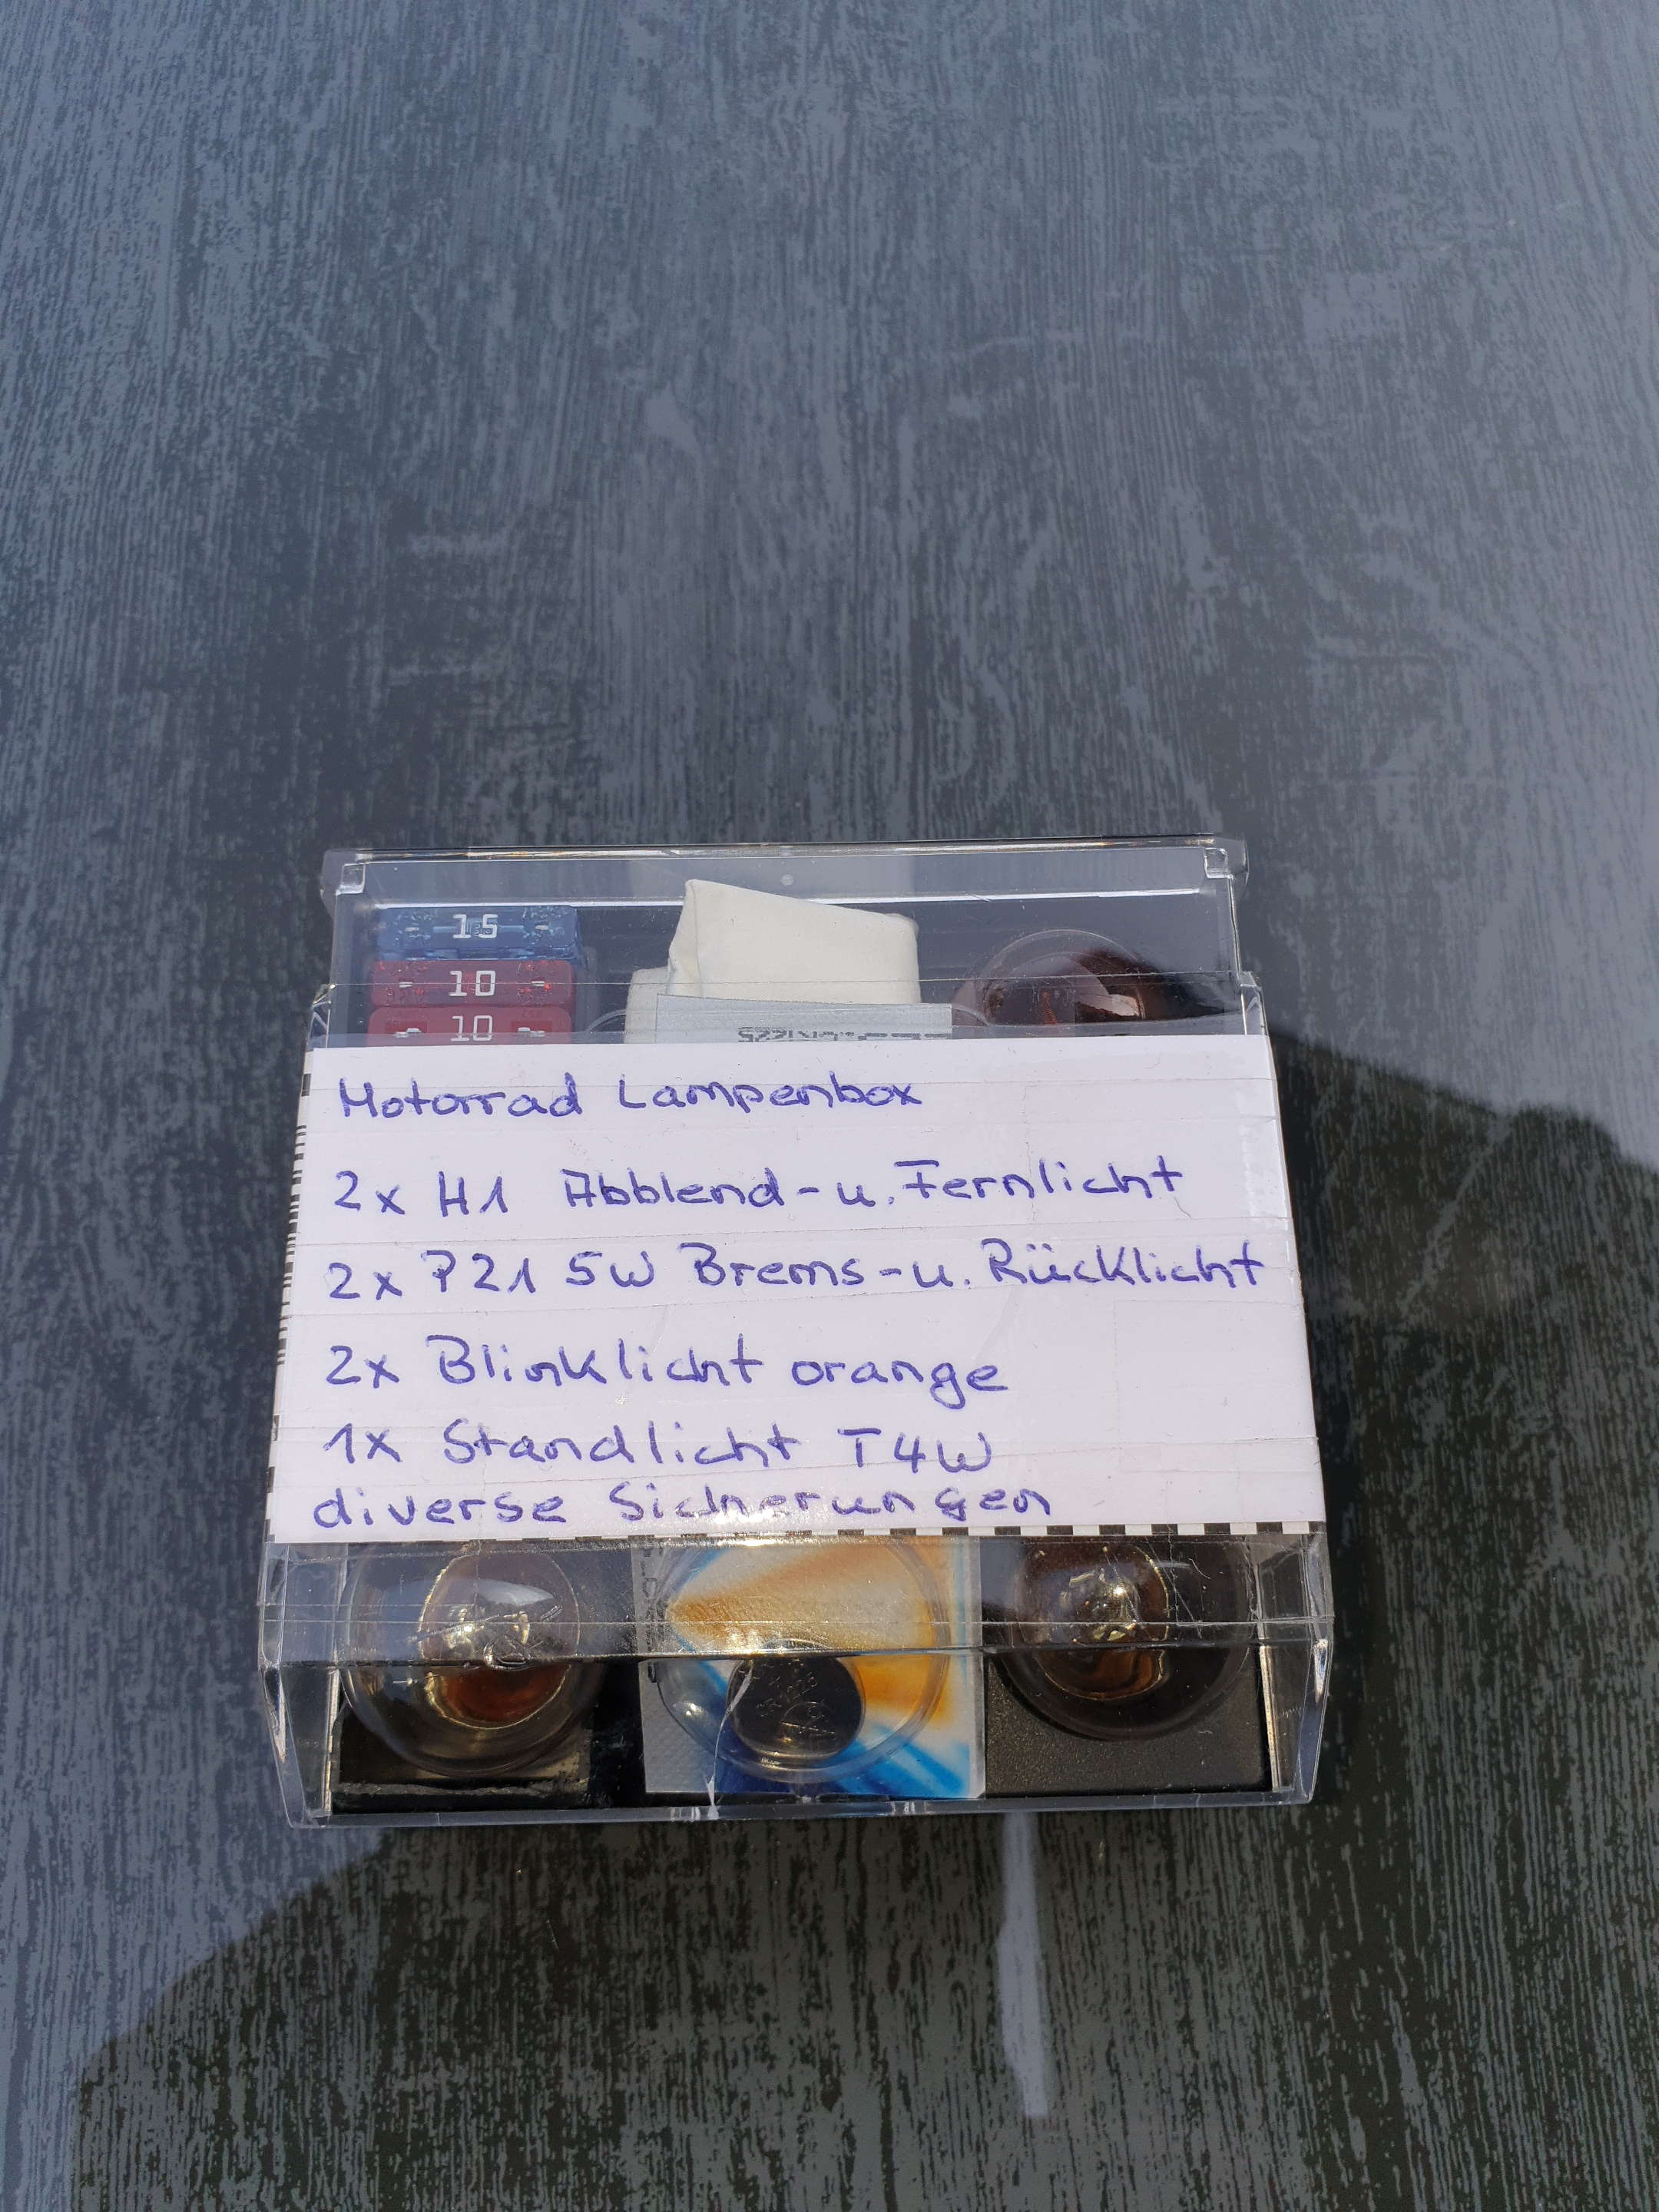 15
10
10
Motorrad Lampenbox
2x H1 Abblend-u. Fernlicht
2x P21 5W Brems-u. Rücklicht
2x Blinklicht orange
1x Standlicht T4W
diverse Sicherungen